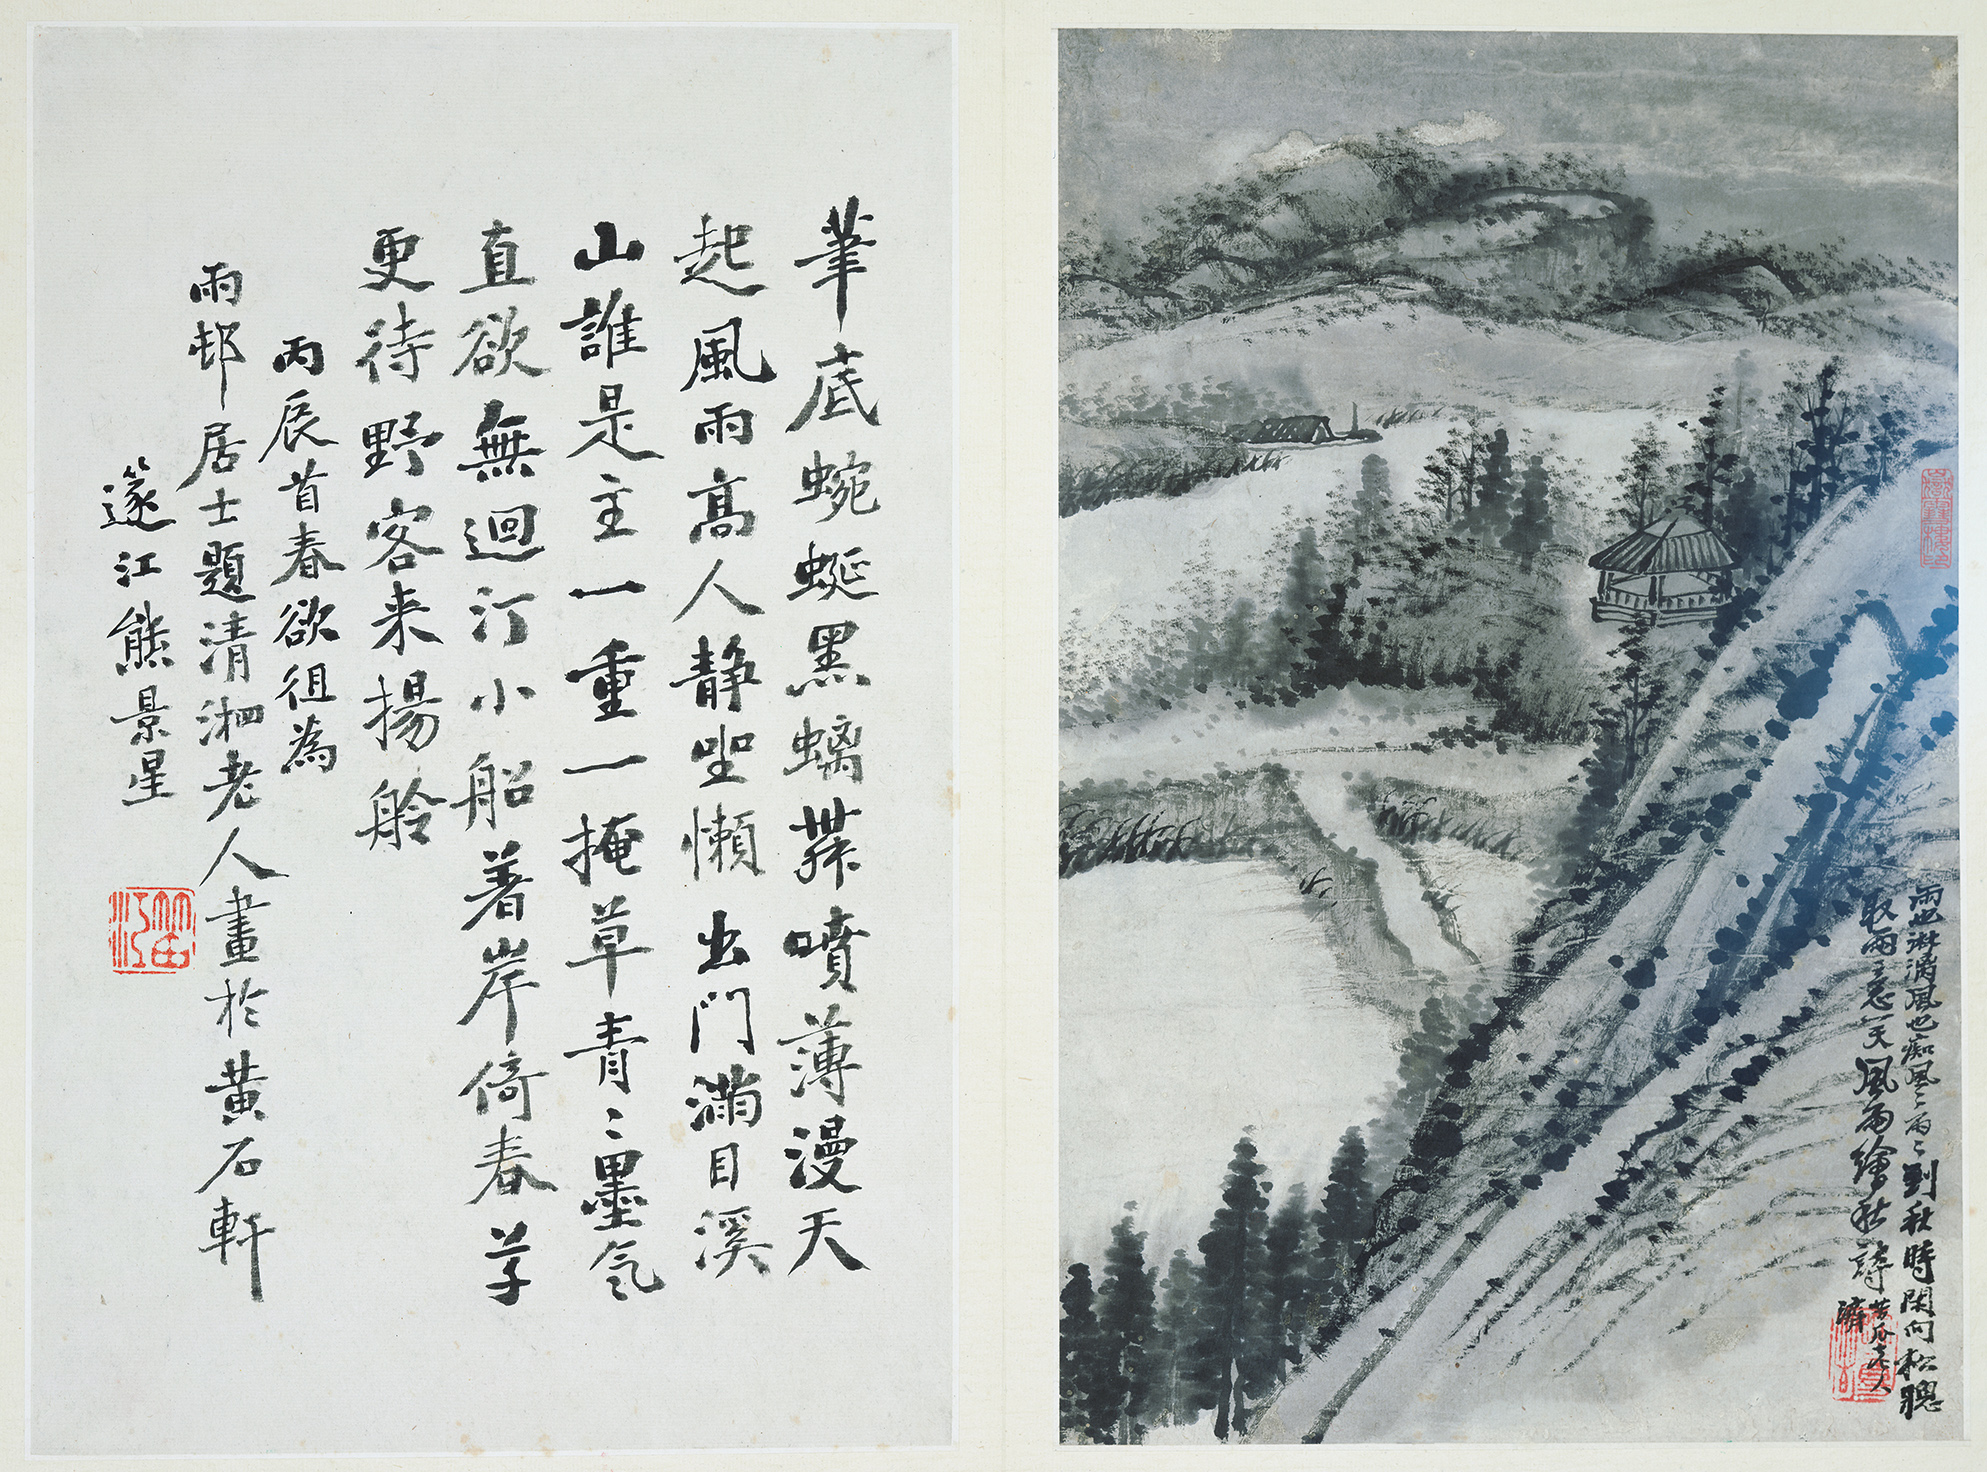 雨也淋漓風也痴風〻雨〻到秋時閑向松牕
取雨意一天風雨繪秋詩
苦瓜老人
濟
嶽雪樓印
筆底蜿蜒黑螭舞噴薄漫天
起風雨高人靜坐懶出門滿目溪
山誰是主一重一掩草青〻墨气
直欲無迴汀小船着岸倚春草
更待野客来揚舲
丙辰首春欲徂為
雨邨居士題清湘老人畫於黃石軒
篴江熊景星
笛江